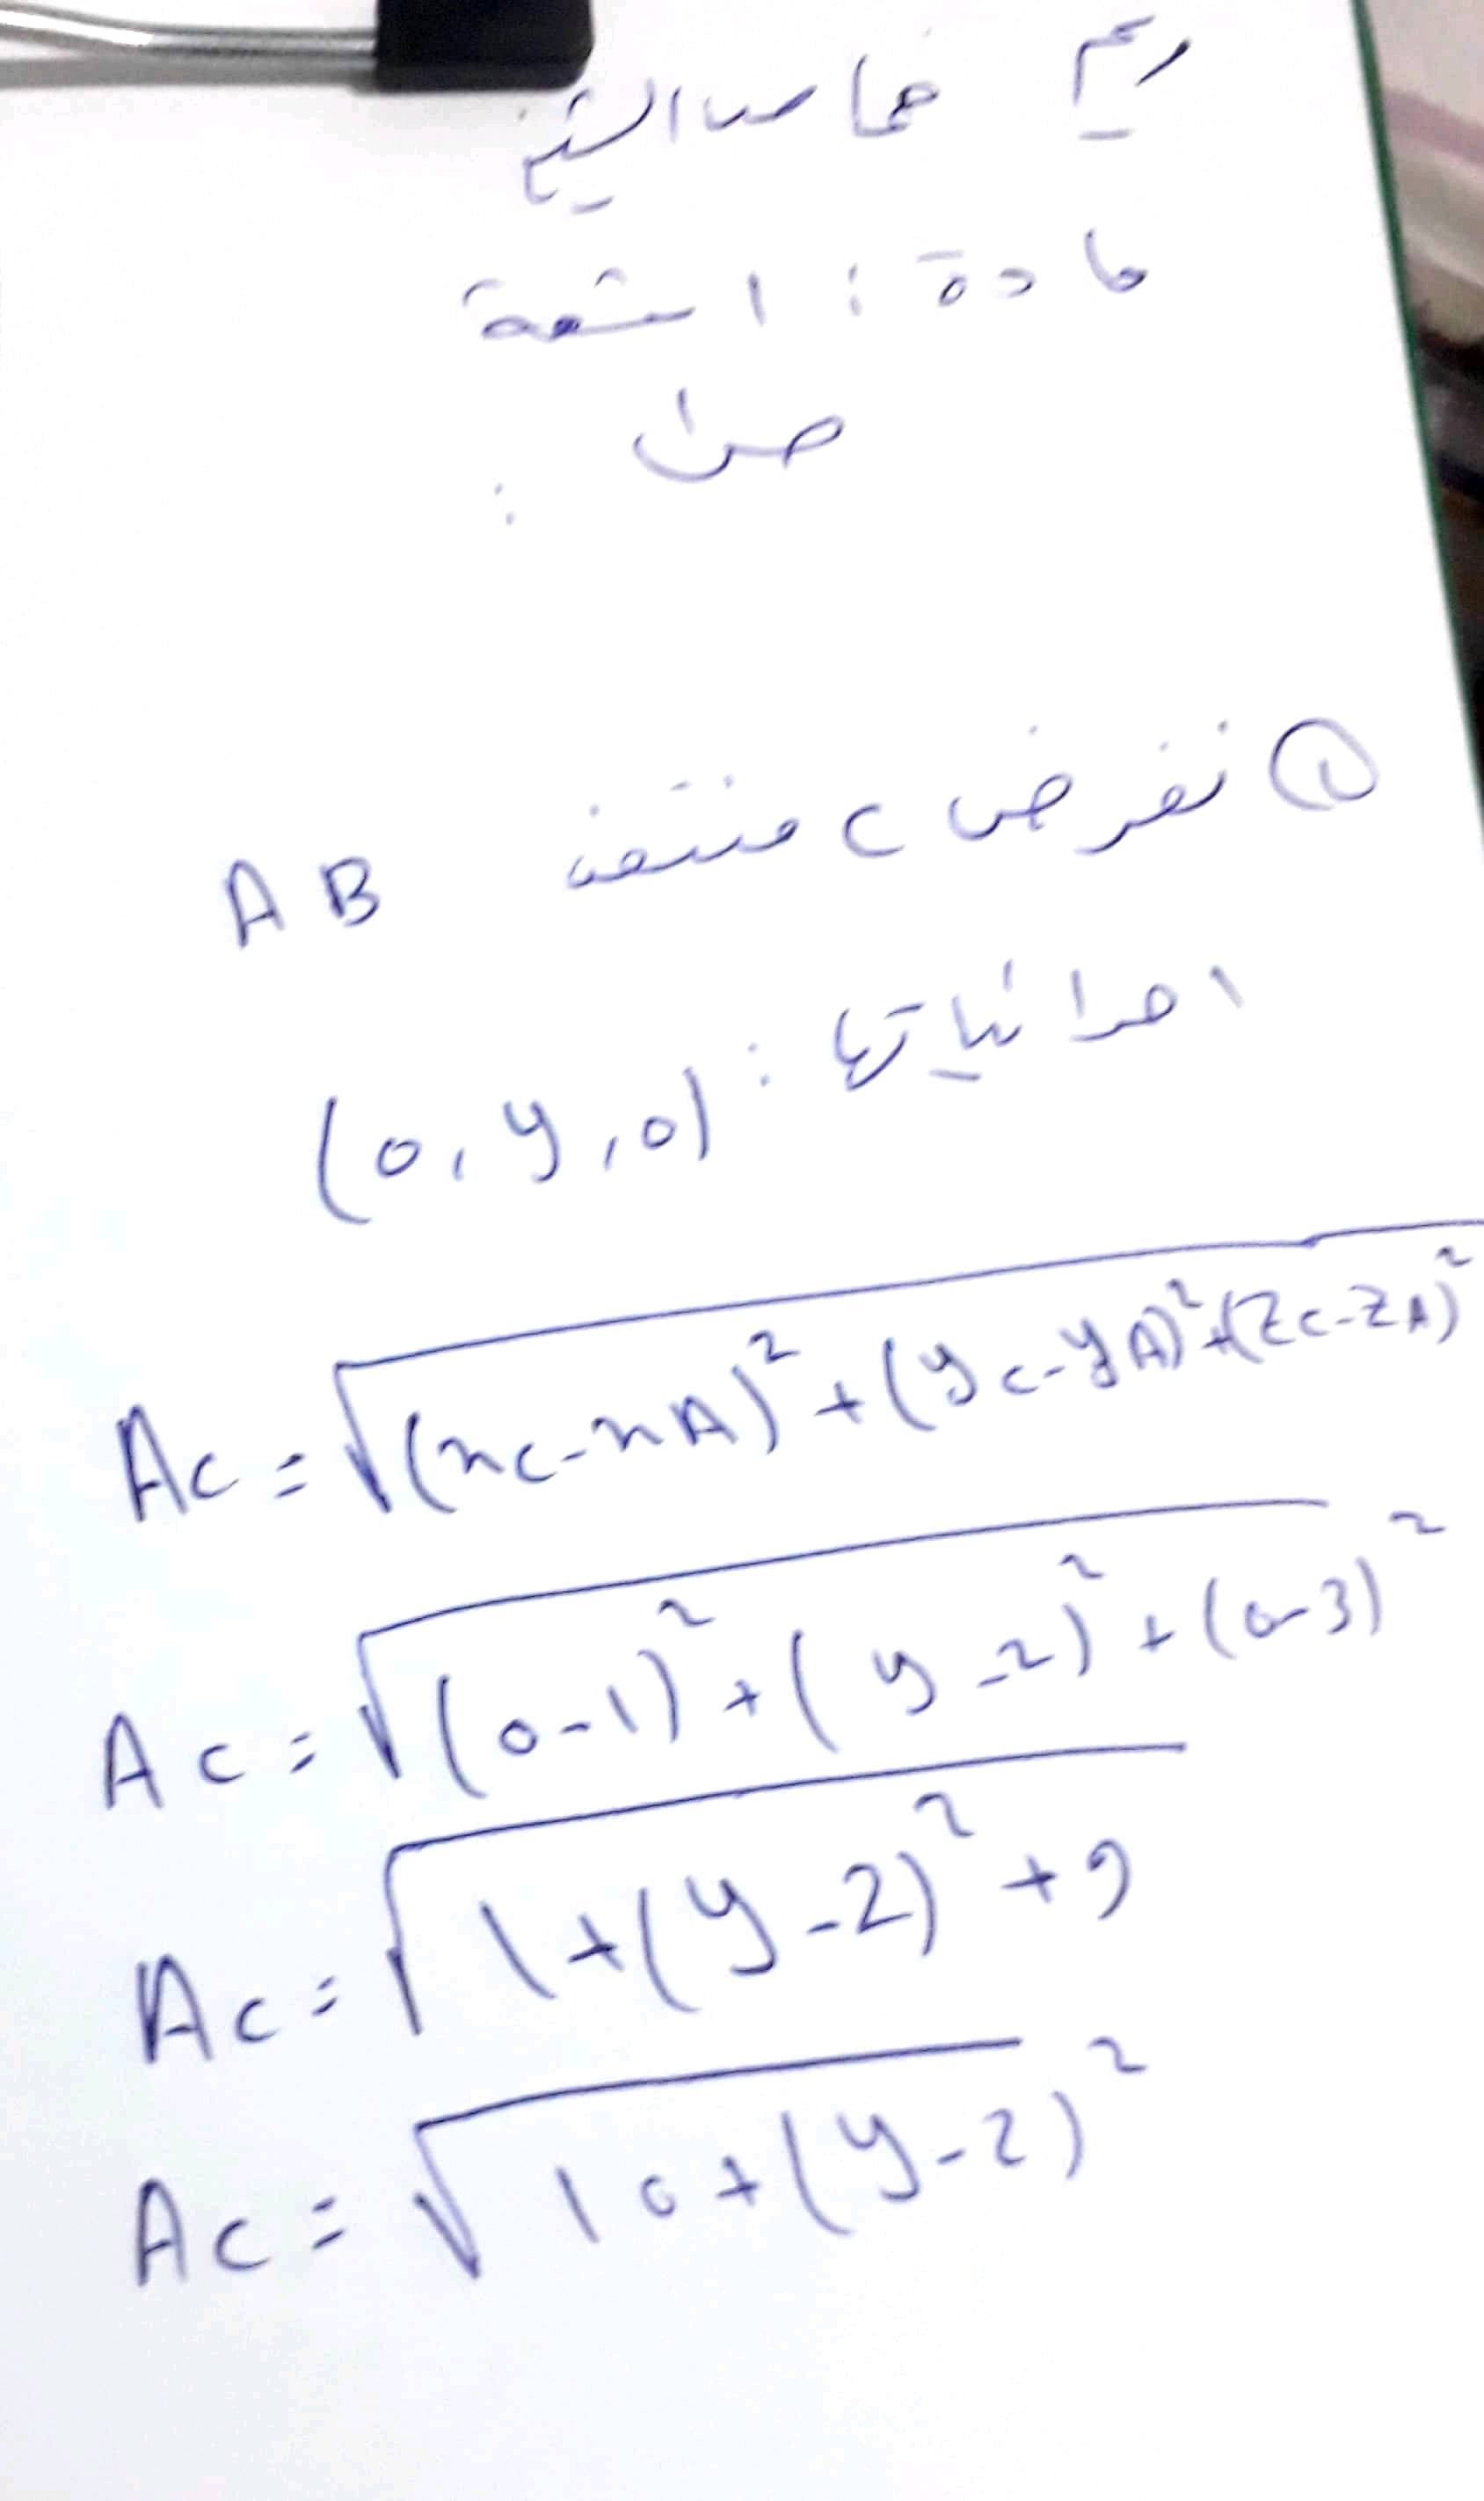 مادة : اشعة
① نفرض C منتصف AB
احداثياتها :
(0, y, 0)
AC = √(xC-xA)² + (yC-yA)² + (zC-zA)²
AC = √(0-1)² + (y-2)² + (0-3)²
AC = √1+(y-2)² + 9
AC = √10+(y-2)²